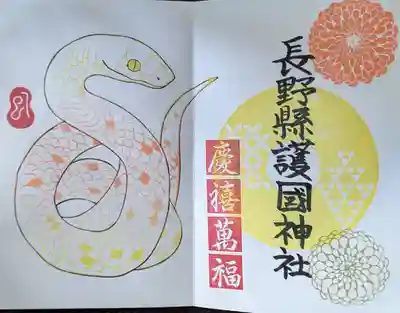 長野縣護國神社
慶禧萬福